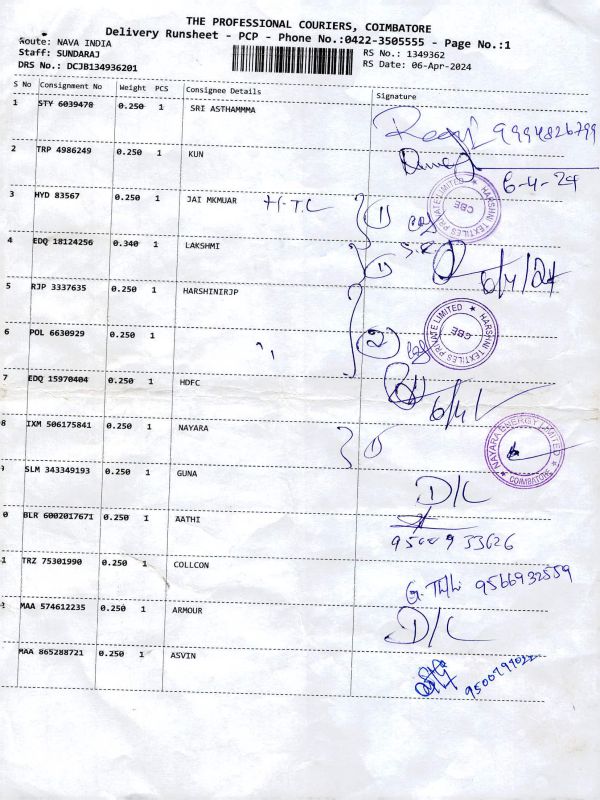 THE PROFESSIONAL COURIERS, COIMBATORE
Delivery Runsheet - PCP - Phone No.:0422-3505555 - Page No.:1
Route: NAVA INDIA
Staff: SUNDARAJ
DRS No.: DCJB134936201
RS No.: 1349362
RS Date: 06-Apr-2024
S No Consignment No Weight PCS Consignee Details Signature
1 STY 6039470 0.250 1 SRI ASTHAMMMA
9994826799
2 TRP 4986249 0.250 1 KUN
6-4-24
3 HYD 83567 0.250 1 JAI MKMUAR H.T.C 1)
HARSHINI TEXTILES PRIVATE LIMITED CBE
4 EDQ 18124256 0.340 1 LAKSHMI 1)
6/4/24
5 RJP 3337635 0.250 1 HARSHINIRJP
HARSHINI TEXTILES PRIVATE LIMITED CBE
6 POL 6630929 0.250 1 " 2)
7 EDQ 15970404 0.250 1 HDFC
6/4
8 IXM 506175841 0.250 1 NAYARA 1)
NAYARA ENERGY LIMITED COIMBATORE
SLM 343349193 0.250 1 GUNA D/L
0 BLR 6002017671 0.250 1 AATHI
95009 33626
1 TRZ 75301990 0.250 1 COLLCON
9566932559
MAA 574612235 0.250 1 ARMOUR D/L
MAA 865288721 0.250 1 ASVIN